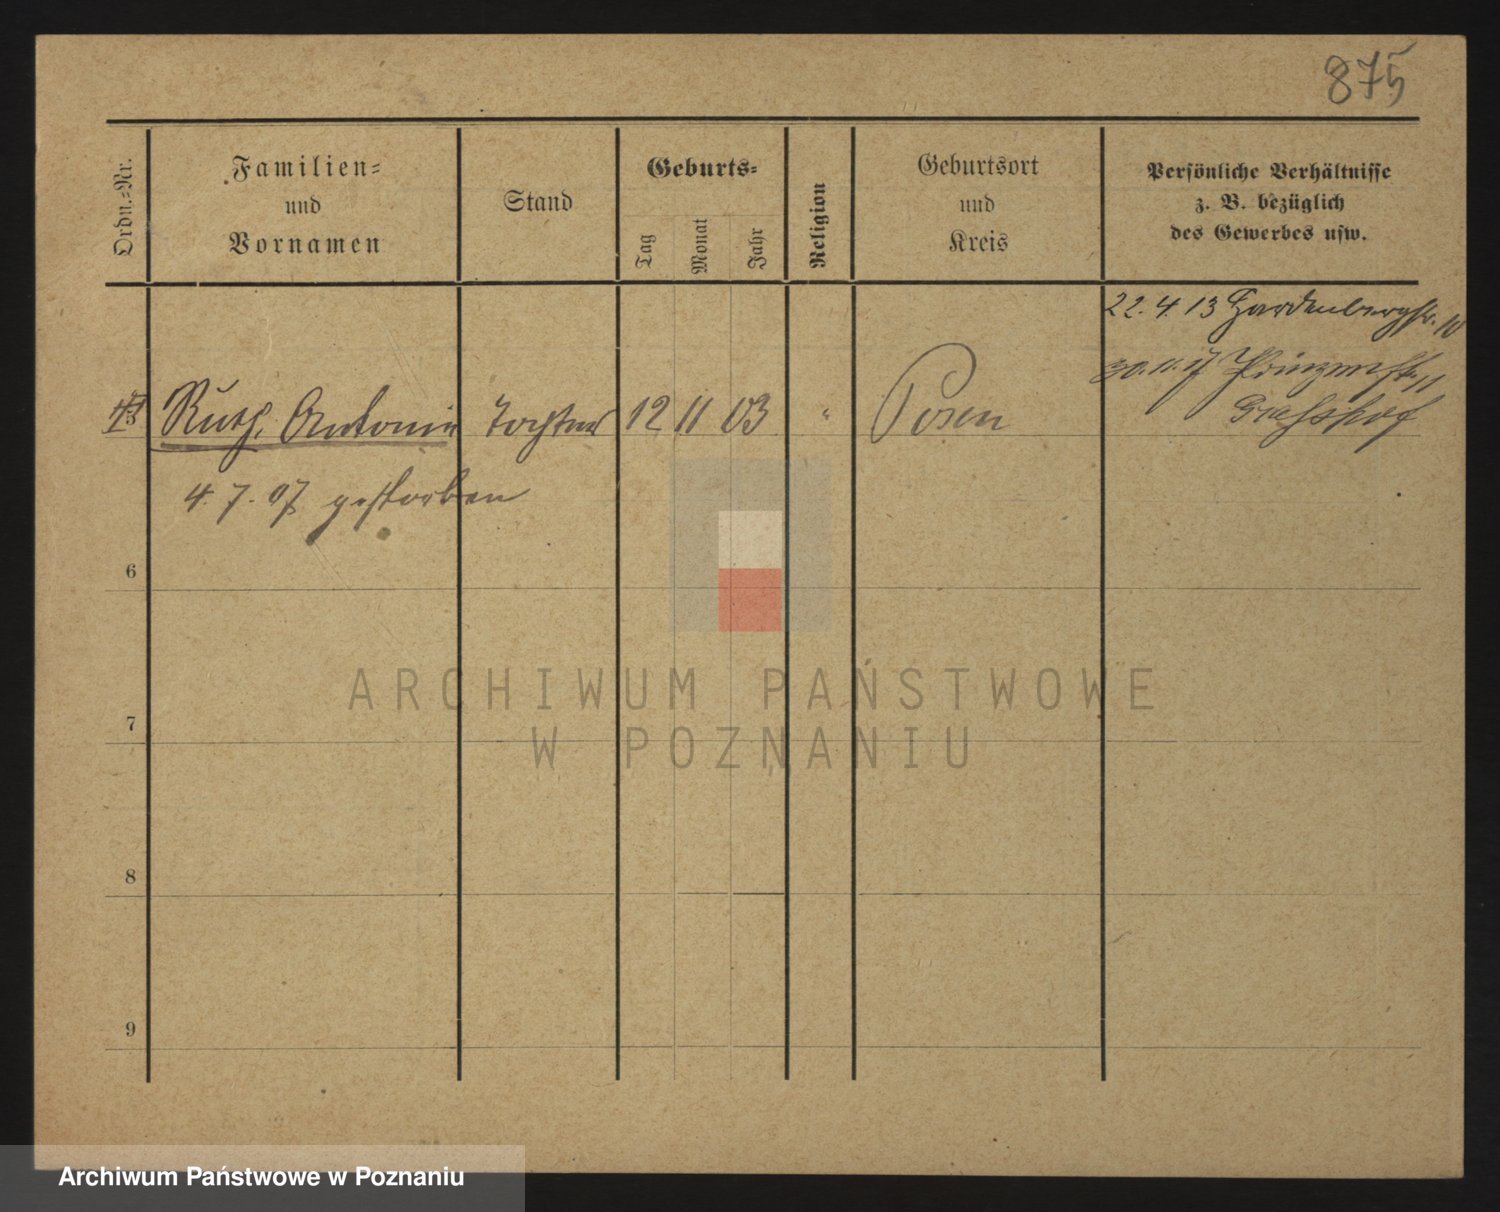 875
Ordn.-Nr.
Familien-
und
Vornamen
Stand
Geburts-
Tag
Monat
Jahr
Religion
Geburtsort
und
Kreis
Persönliche Verhältnisse
z. B. bezüglich
des Gewerbes usw.
22. 4. 13 Hardenbergstr. 10
30. 11. 17 Prinzenstr. 11
Ruth, Antonie Tochter 12 11 03 " Posen
4. 7. 07 gestorben
6
7
8
9
ARCHIWUM PAŃSTWOWE
W POZNANIU
Archiwum Państwowe w Poznaniu